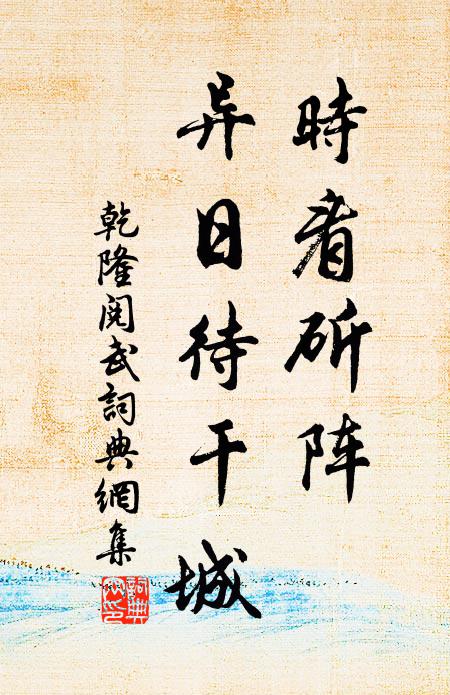 時看斫阵
异日待干城
乾隆阅武詞典網集